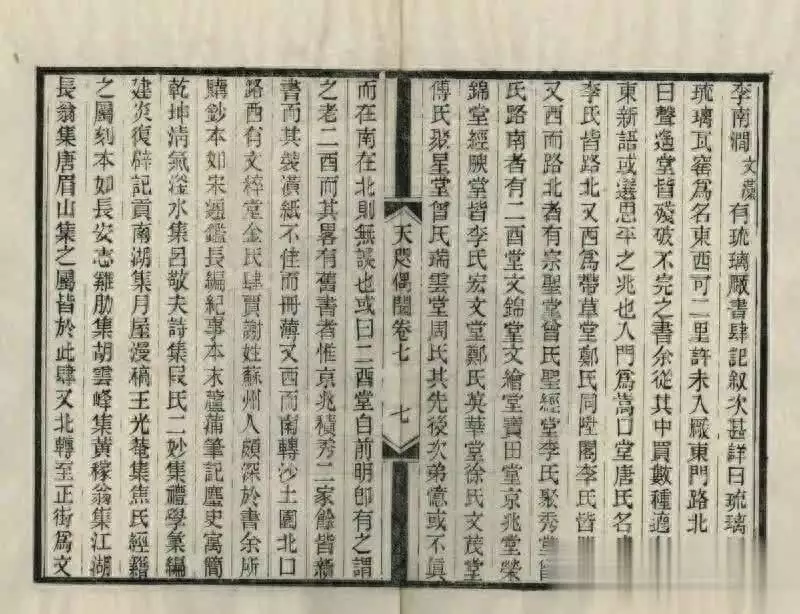 李南澗文藻有琉璃厰書肆記叙次甚詳曰琉璃
琉璃瓦窰爲名東西可二里許未入厰東門路北
曰聲遙堂皆殘破不完之書余從其中買數種適
東新語或選思平之兆也入門爲嵩口堂唐氏名
李氏皆路北又西爲帶草堂鄭氏同陞閣李氏皆
又西而路北者有宗聖堂曾氏聖經堂李氏聚秀堂曾
氏路南者有二酉堂文錦堂文繪堂寶田堂京兆堂榮
錦堂經腴堂皆李氏宏文堂鄭氏英華堂徐氏文茂堂
傅氏聚星堂曾氏瑞雲堂周氏其先後次弟憶或不眞
天咫偶聞卷七
七
而在南在北則無誤也或曰二酉堂自前明卽有之謂
之老二酉而其畧有舊書者惟京兆積秀二家餘皆新
書而其裝潢紙不佳而册薄又西而南轉沙土園北口
路西有文粹堂金氏肆賈謝姓蘇州人頗深於書余所
購鈔本如宋通鑑長編紀事本末蘆浦筆記麈史寓簡
乾坤清氣滏水集呂敬夫詩集段氏二妙集禮學彙編
建炎復辟記貢南湖集月屋漫稿王光菴集焦氏經籍
之屬刻本如長安志雞肋集胡雲峰集黃稼翁集江湖
長翁集唐眉山集之屬皆於此肆又北轉至正街爲文